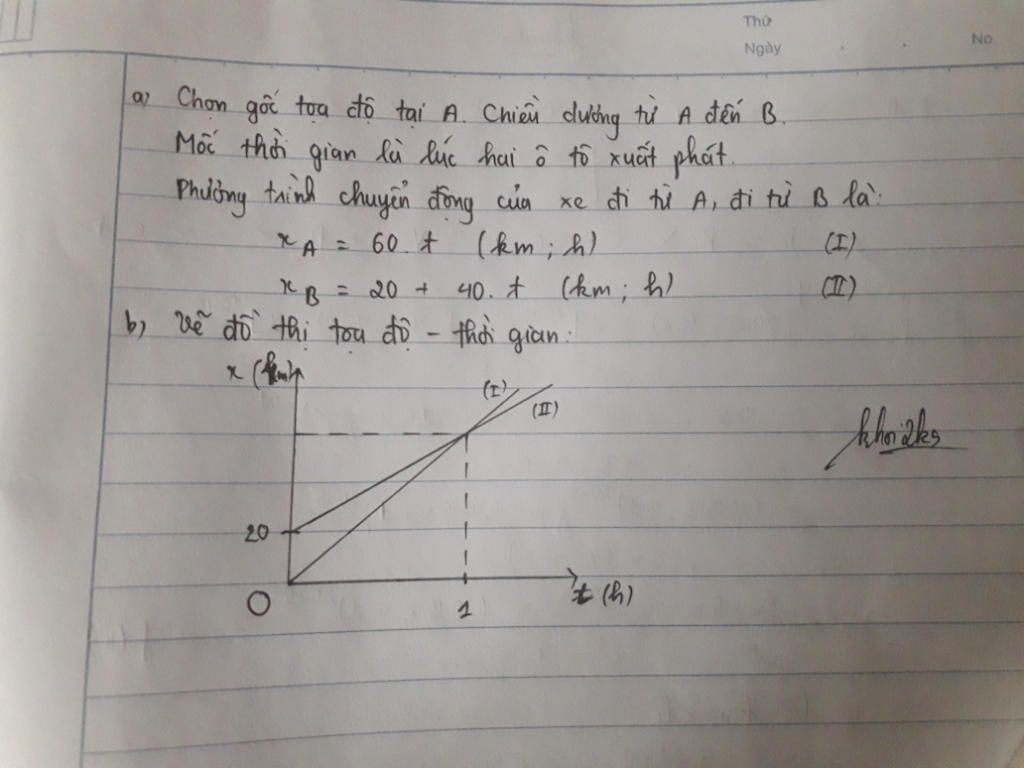 Thứ
Ngày . . No
a) Chọn gốc tọa độ tại A. Chiều dương từ A đến B.
Mốc thời gian là lúc hai ô tô xuất phát.
Phương trình chuyển động của xe đi từ A, đi từ B là:
x_A = 60.t (km ; h) (I)
x_B = 20 + 40.t (km ; h) (II)
b) Vẽ đồ thị tọa độ - thời gian:
x (km)
(I)
(II)
khoi2k5
20
O
1
t (h)